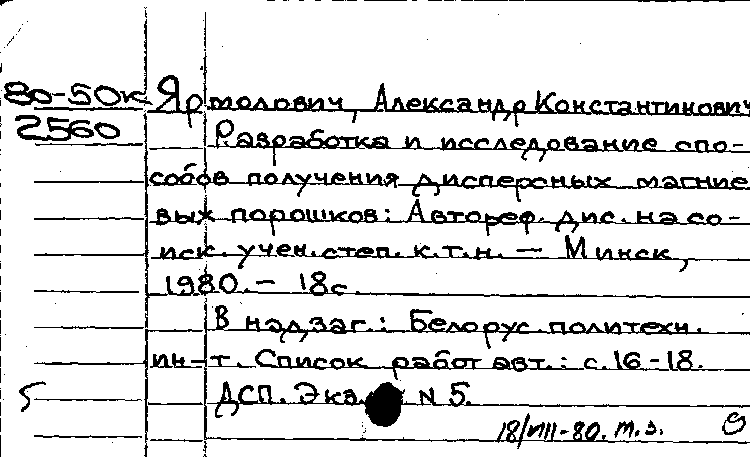 80-50к Ярмолович, Александр Константинович
2560 Разработка и исследование спо-
собов получения дисперсных магние
вых порошков: Автореф. дис. на со-
иск. учен. степ. к.т.н. — Минск,
1980. — 18с.
В надзаг.: Белорус. политехн.
ин-т. Список работ авт.: с.16-18.
5 ДСП. Экз. N 5.
18/VIII-80. т.з.